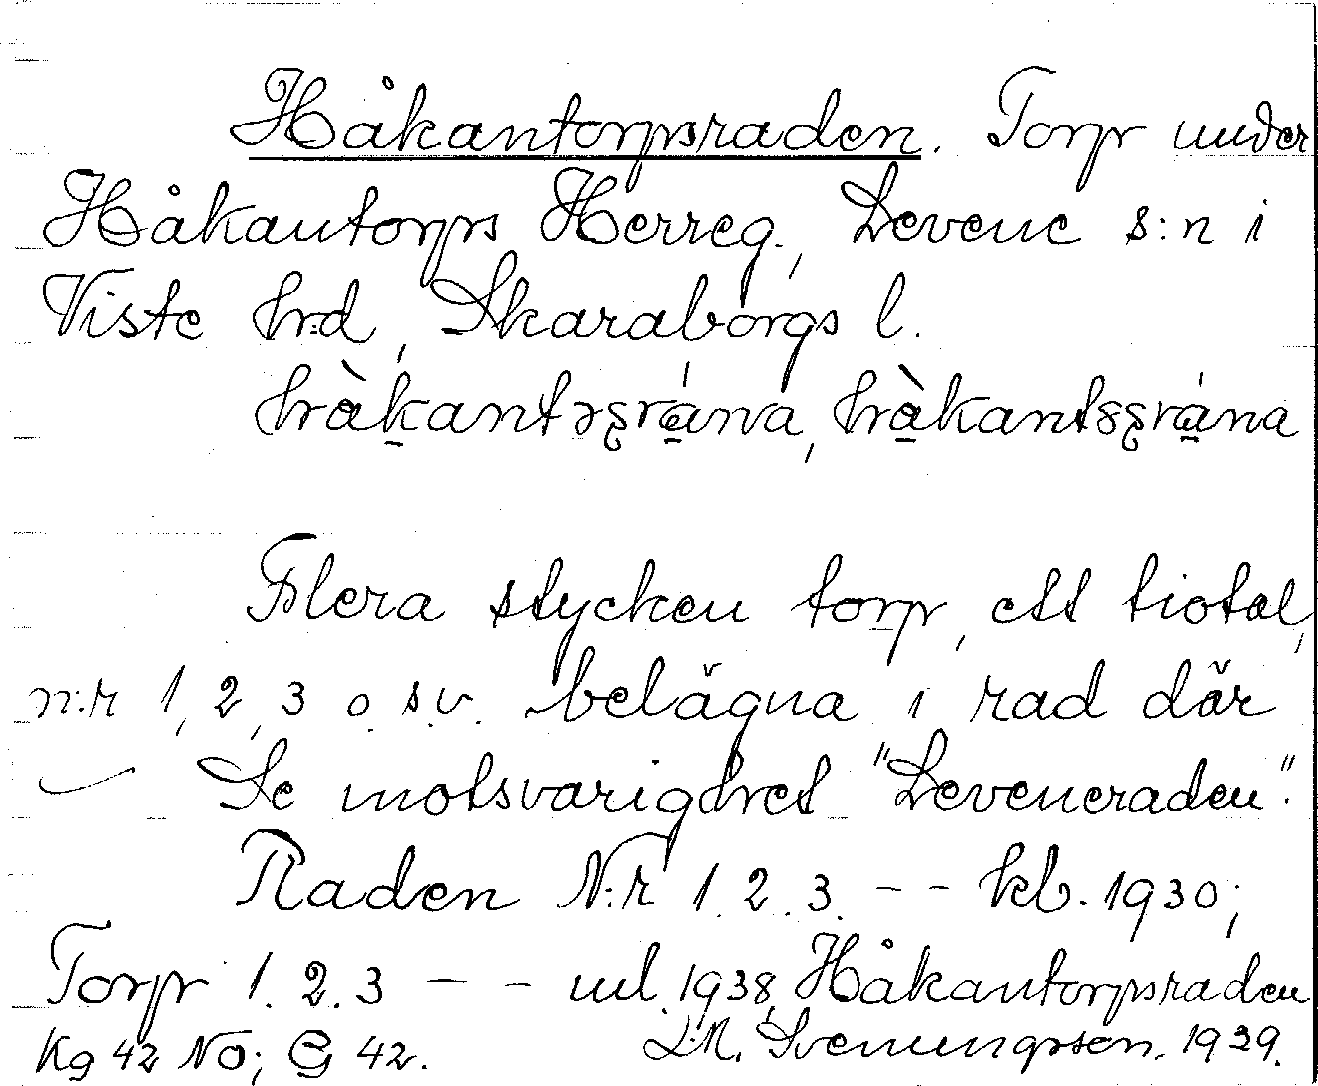 Håkantorpsraden. Torp under
Håkantorps Herreg., Levene s:n i
Viste hrd, Skaraborgs l.
Flera stycken torp, ett tiotal,
n:r 1, 2, 3 o.s.v. belägna i rad där
Se motsvarighet "Leveneraden".
Raden N:r 1. 2. 3. - - kb. 1930;
Torp 1. 2. 3 - - ml. 1938, Håkantorpsraden
Kg 42 NO; G 42. L.M. Svenungsson. 1939.